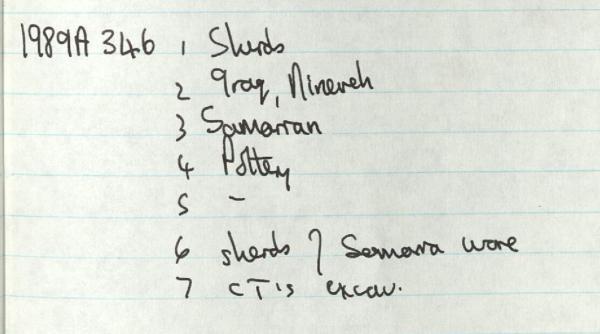 1989A 346 1 Sherds
2 Iraq, Nineveh
3 Samarran
4 Pottery
5 -
6 sherds ? Samarra ware
7 CT's excav.